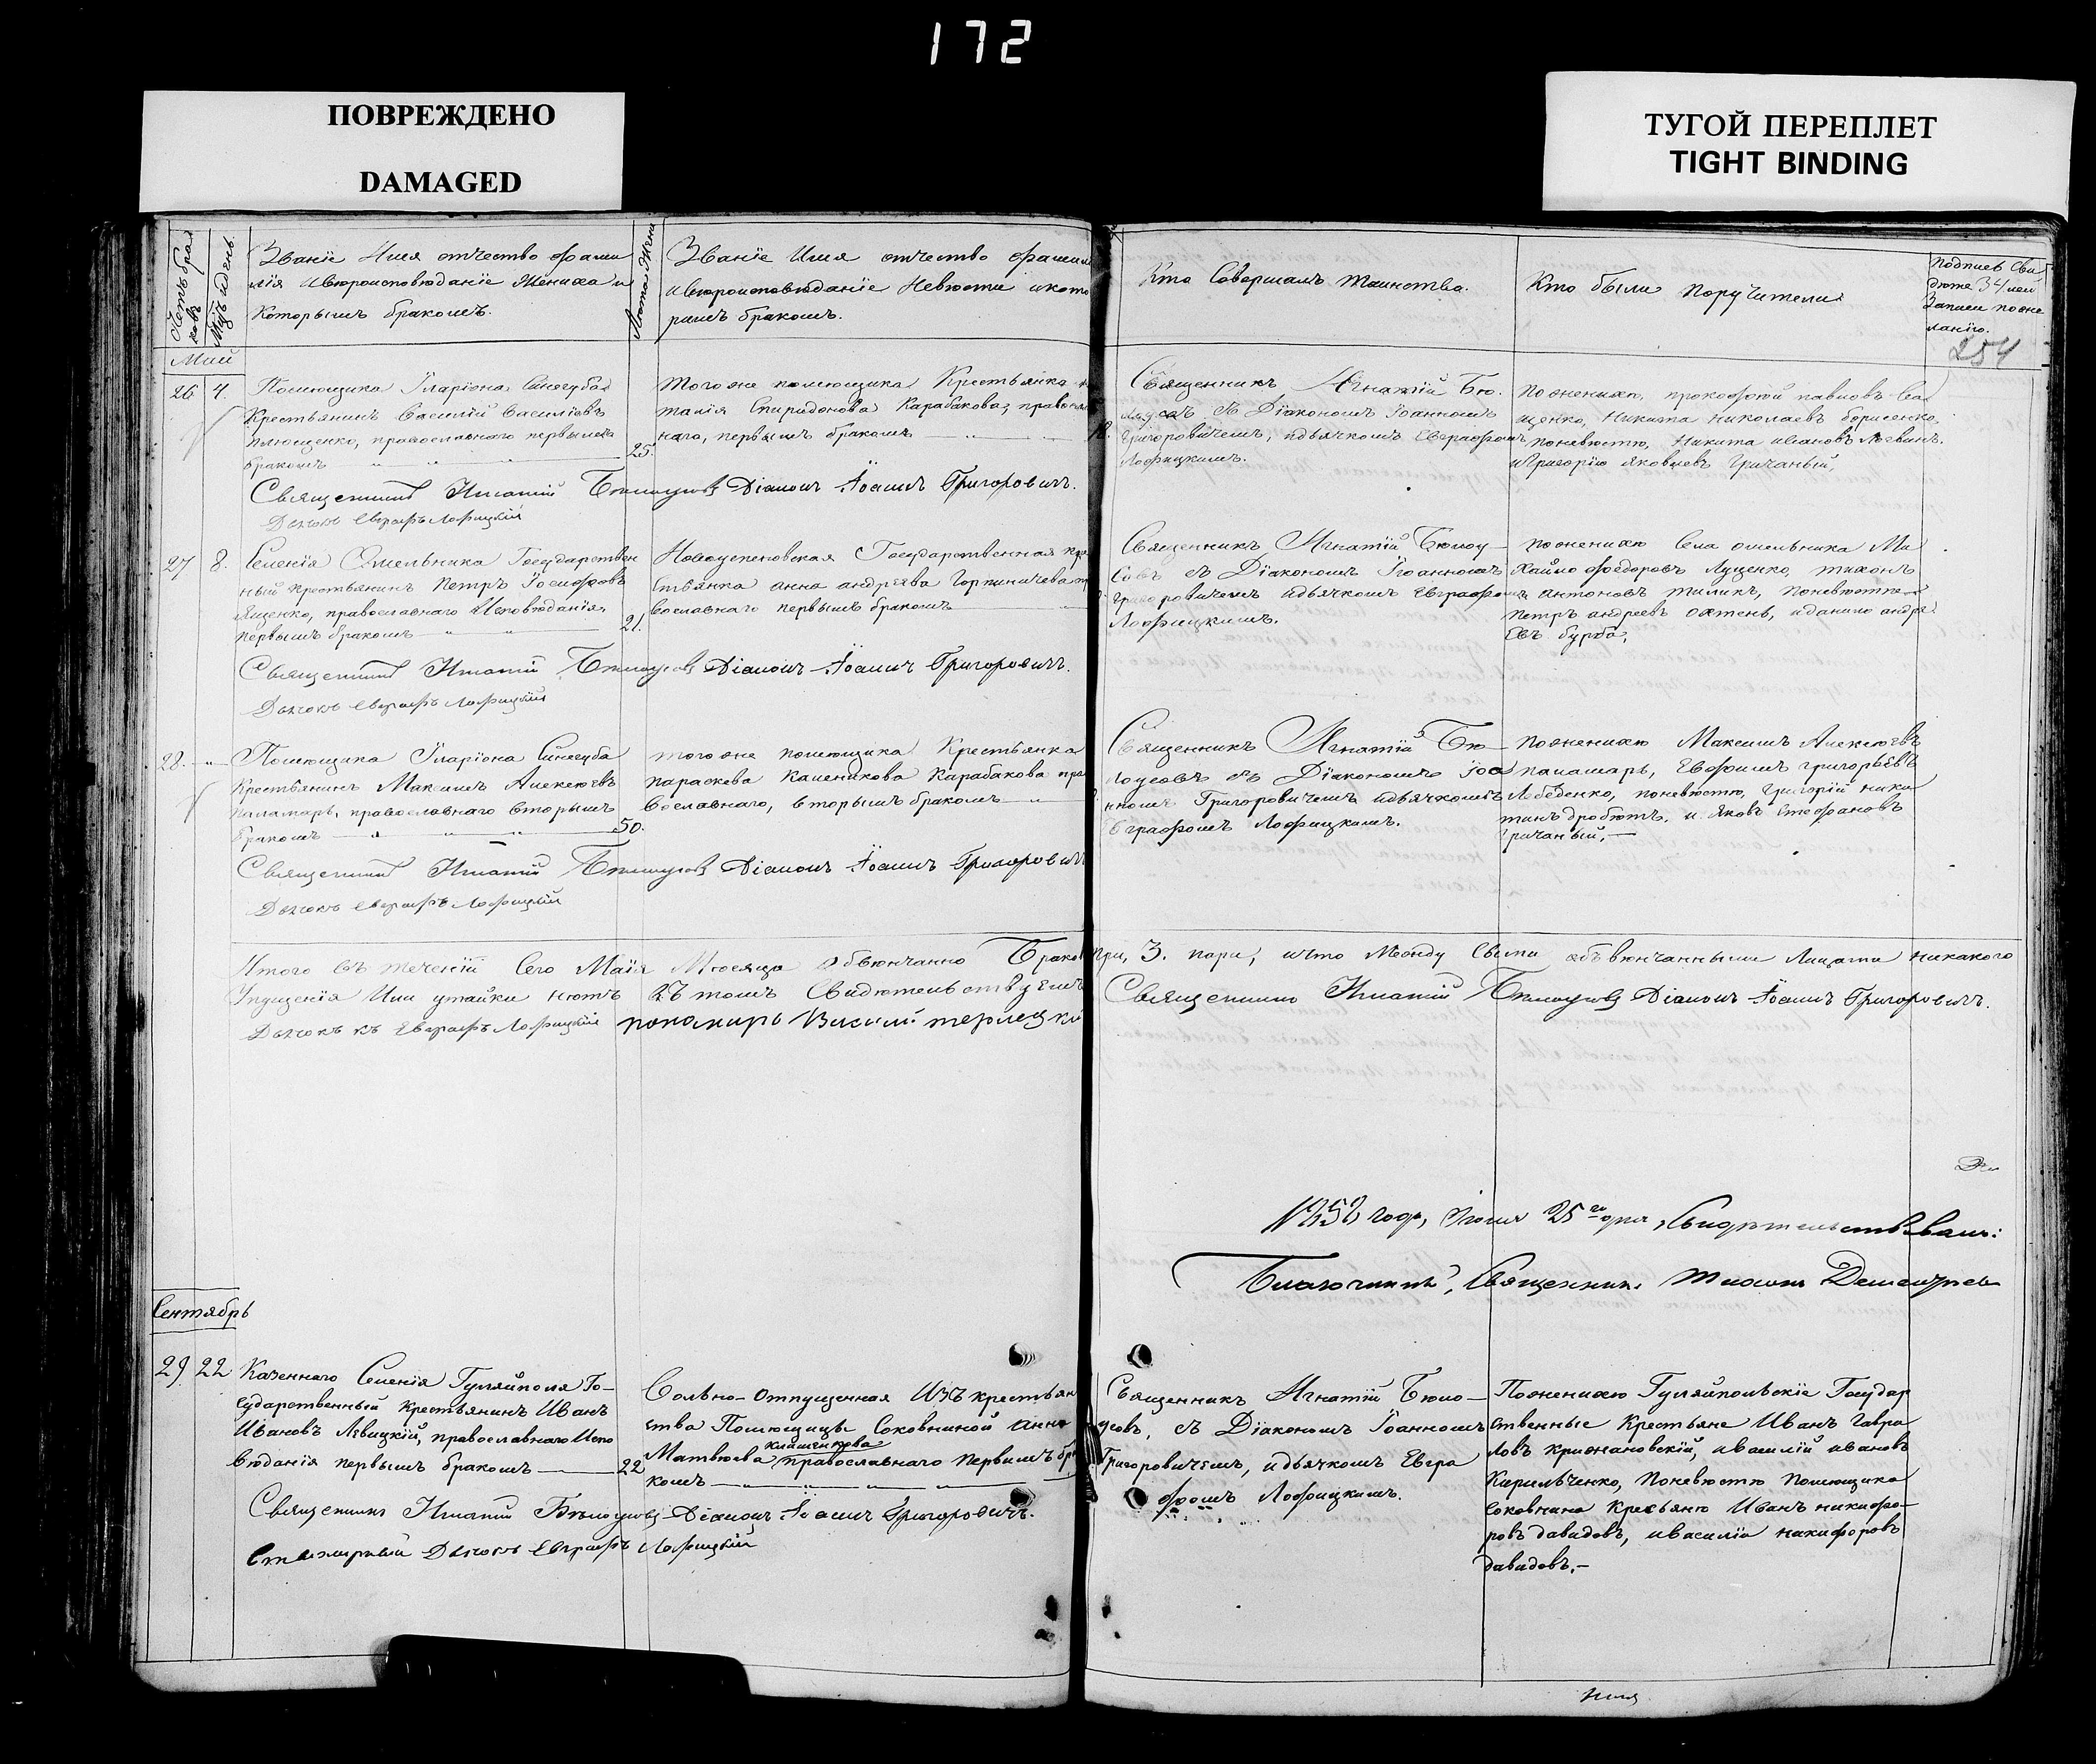 172
ПОВРЕЖДЕНО
DAMAGED
ТУГОЙ ПЕРЕПЛЕТ
TIGHT BINDING
Званіе Имя отчество фами
лія ивѣроисповѣданіе Жениха и
Которымъ бракомъ.
Званіе Имя отчество фамилі
ивѣроисповѣданіе Невѣсты икото
рымъ бракомъ.
Кто Совершалъ таинство.
Кто были поручители
Подпись Сви
дѣте
Записи поже
ланію.
254
Май
26 4.
Помѣщика Іларіона Синегуба
Крестьянинъ Василій Василіевъ
Плющенко, православнаго первымъ
бракомъ
25.
Тогоже помѣщика Крестьянка
талія Спиридонова Карабакова, правосла
наго, первымъ бракомъ
Священникъ Игнатій Бѣ
съ Діакономъ Іоанномъ
Григоровичемъ, идьячкомъ Евграфомъ
Лофицкимъ.
пожениху, прокофій павловъ
щенко, Никита Николаевъ борисенко,
поневѣстѣ, Никита ивановъ
иГригорію яковлевъ Гричаный,
Священникъ Игнатій Бѣлоусовъ Діаконъ Іоаннъ Григоровичъ.
Дьячокъ Евграфъ Лофицкій
27 8.
Селенія Омельника Государствен
ный крестьянинъ Петръ Іосифовъ
Ященко, православнаго Исповѣданія
первымъ бракомъ
21.
Новоуспеновская Государственная кре
стьянка анна андрѣева Горпиничева пра
вославнаго первымъ бракомъ
Священникъ Игнатій Бѣлоу
совъ съ Діакономъ Іоанномъ
Григоровичемъ идьячкомъ Евграфомъ
Лофицкимъ.
пожениху Села омельника Ми
хайло федоровъ Луценко, тихонъ
антоновъ тиликъ, поневѣстѣ
петръ андреевъ охтень, иданило андре
евъ бурба,
Священникъ Игнатій Бѣлоусовъ Діаконъ Іоаннъ Григоровичъ.
Дьячокъ Евграфъ Лофицкій
28.
Помѣщика Іларіона Синегуба
Крестьянинъ Максимъ Алексѣевъ
паламарь, православнаго вторымъ
бракомъ
50.
тогоже помѣщика Крестьянка
параскева Каленикова Карабакова пра
вославнаго, вторымъ бракомъ
Священникъ Игнатій Бѣ
лоусовъ съ Діакономъ Іоа
нномъ Григоровичемъ идьячкомъ
Евграфомъ Лофицкимъ.
пожениху Максимъ Алексѣевъ
паламарь, Евфимъ григорьевъ
Лебеденко, поневѣстѣ, григорій ники
тинъ дробѣтъ, и яковъ Стефановъ
гричаный,
Священникъ Игнатій Бѣлоусовъ Діаконъ Іоаннъ Григоровичъ
Дьячокъ Евграфъ Лофицкій
Итого въ теченіи Сего Маія Мѣсяца обвѣнчанно Брако при, 3. пари, ичто Между Сѣми обвѣнчанными Лицами никакого
Упущенія Или утайки нѣтъ въ томъ Свидѣтельствуемъ Священникъ Игнатій Бѣлоусовъ Діаконъ Іоаннъ Григоровичъ.
Дьячокъ Евграфъ Лофицкій понамарь Василій терлецкій
1852 года, Іюня 25го дня, Свидѣтельствовалъ:
Благочинный, Священникъ
Сентябрь
29 22
Казеннаго Селенія Гуляйполя Го-
сударственный крестьянинъ Иванъ
Ивановъ Лѣвицкій, православнаго Испо
вѣданія первымъ бракомъ
22
Вольно-Отпущенная Изъ крестьян
ства Помѣщицы Соковниной анна
клименкова
Матвѣева православнаго первымъ бра
комъ
Священникъ Игнатій Бѣло-
усовъ, съ Діакономъ Іоанномъ
Григоровичемъ, идьячкомъ Евгра
фомъ Лофицкимъ.
Пожениху Гуляйпольскіе Государ
ственные Крестьяне Иванъ Гаври
ловъ крижановскій, ивасилій ивановъ
Кирильченко, поневѣстѣ помѣщика
Соковнина Кресьяне Иванъ никифо-
ровъ давидовъ, ивасилій никифоровъ
давидовъ.-
Священникъ Игнатій Бѣлоусовъ Діаконъ Іоаннъ Григоровичъ.
Дьячокъ Евграфъ Лофицкій